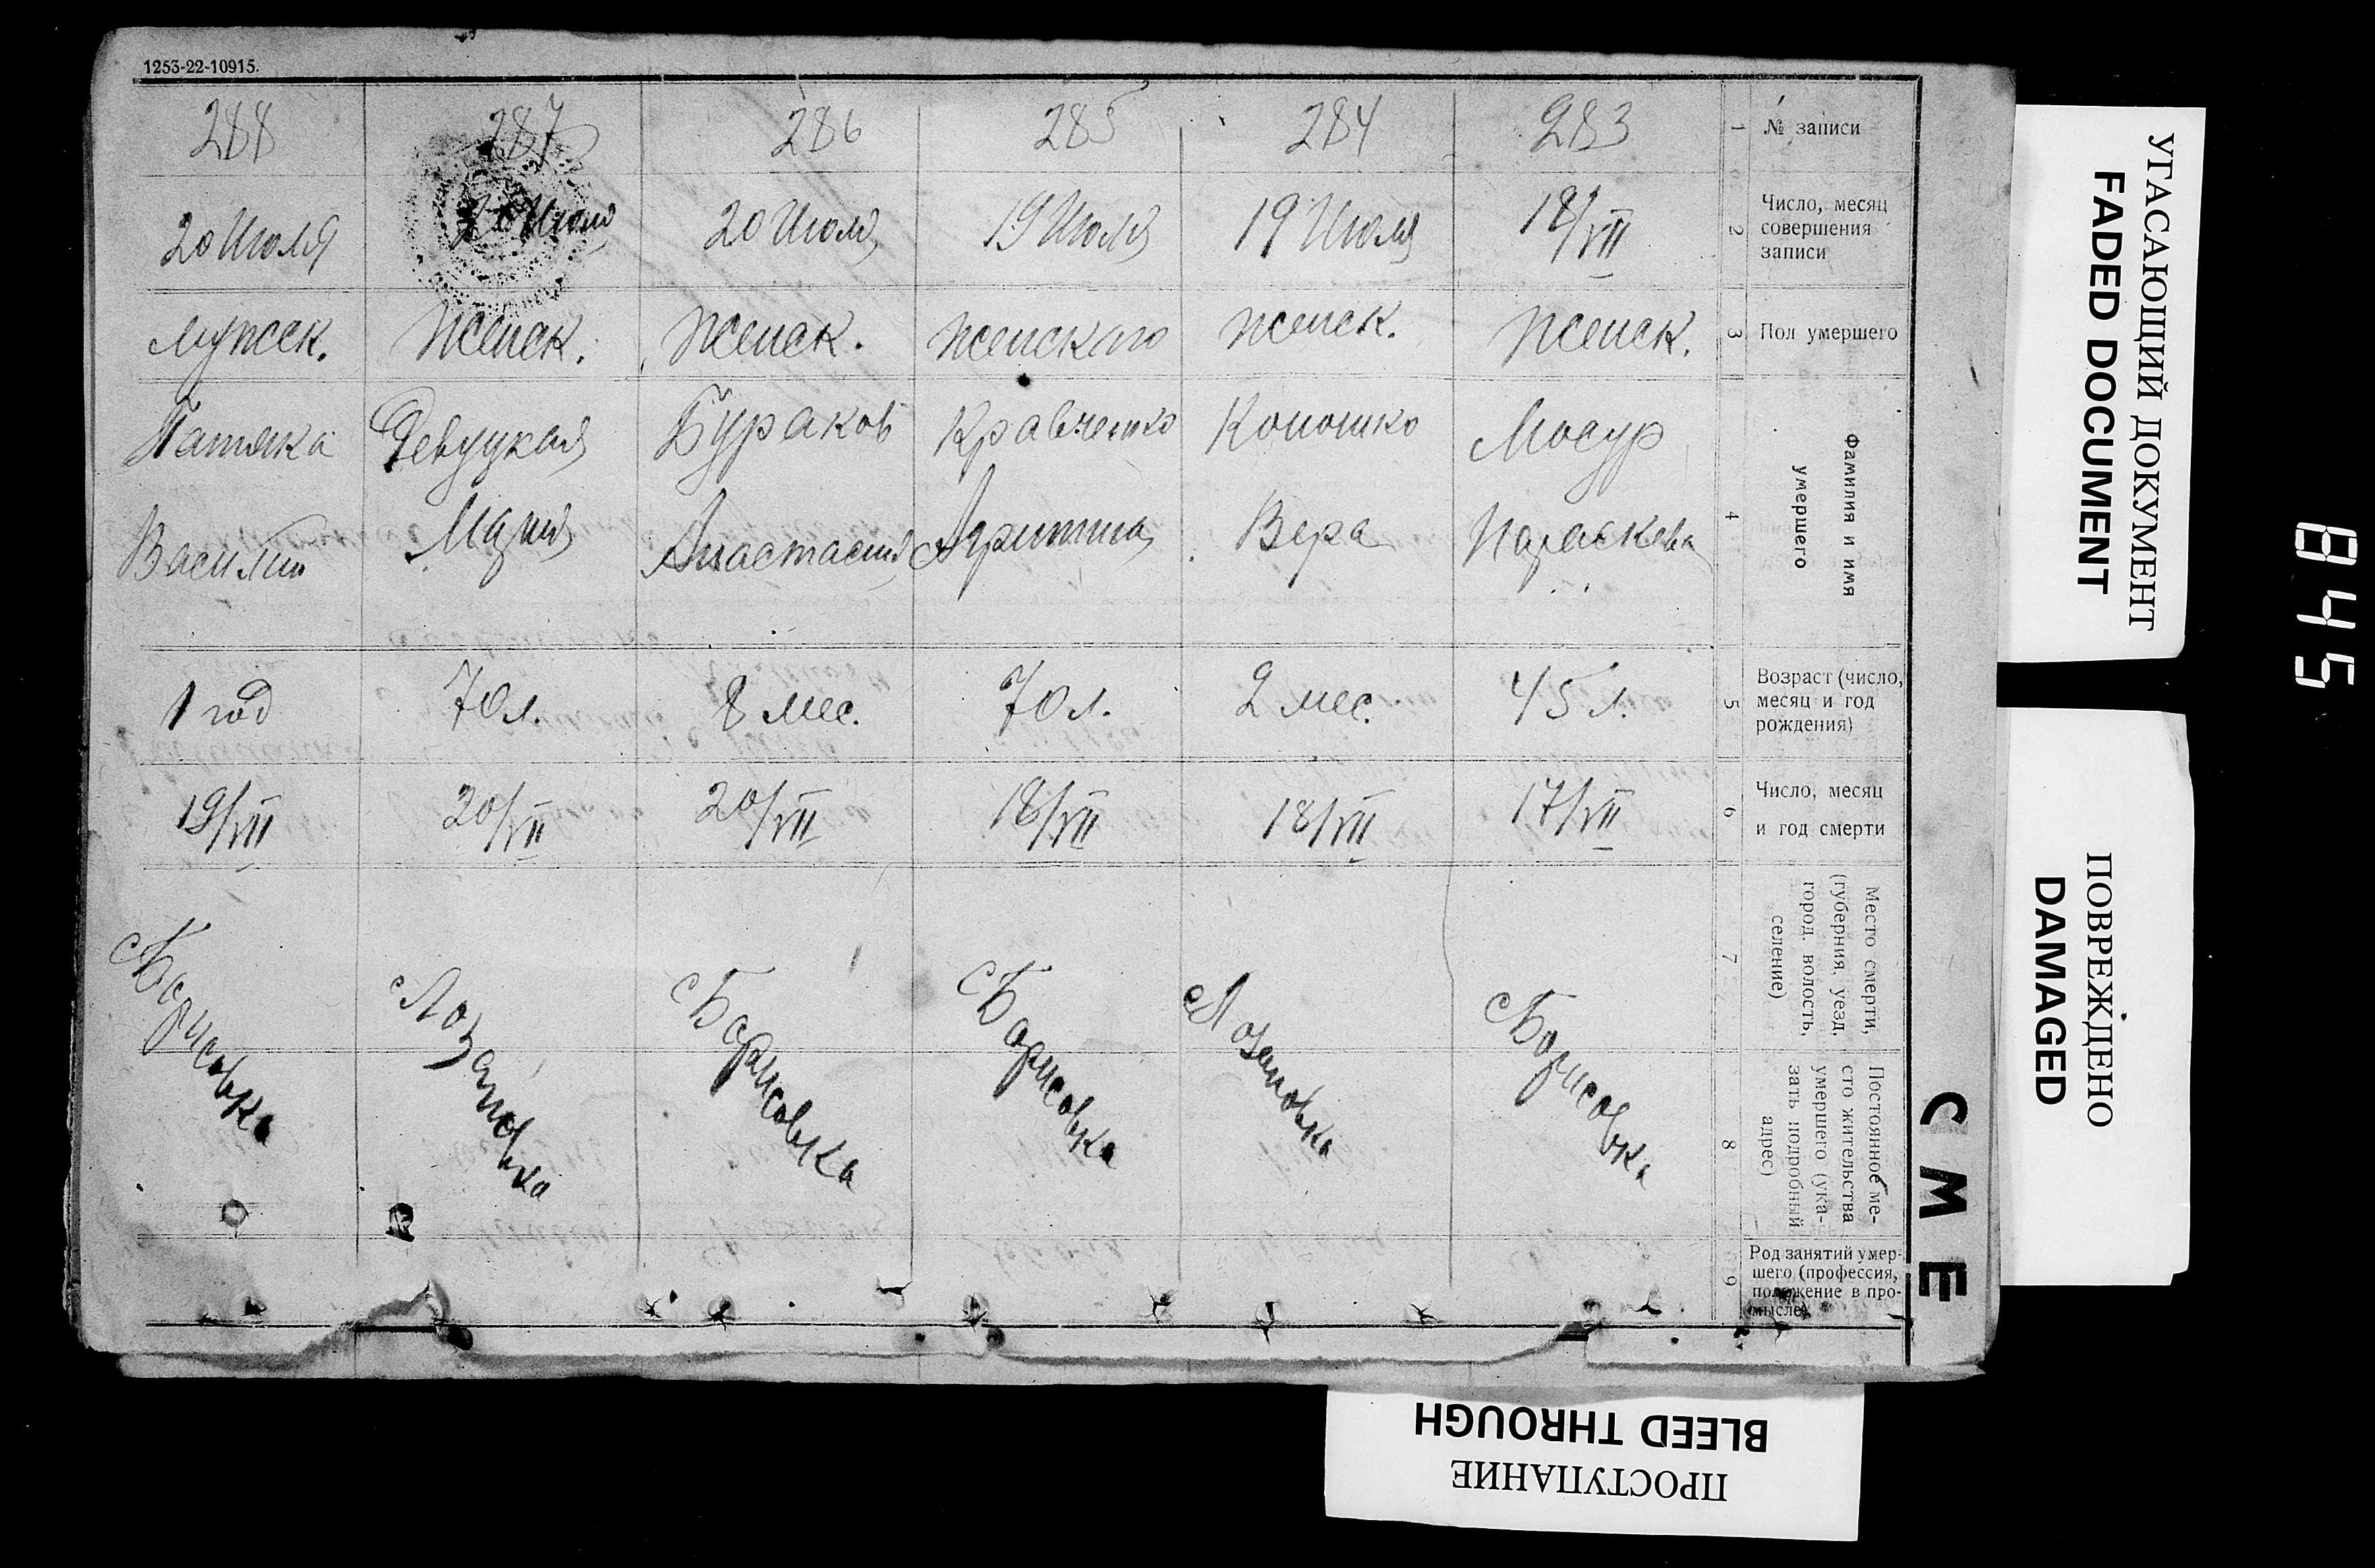 1253-22-10915.
288 287 286 285 284 283 1 № записи
20 Июля 20 Июля 20 Июля 19 Июля 19 Июля 18/VII 2 Число, месяц
совершения
записи
мужск. женск. женск. женского женск. женск. 3 Пол умершего
Бураков Кравченко Коношко Мосур
Василий Мария Анастасия Вера Параскева 4 Фамилия и имя
умершего
1 год 70 л. 8 мес. 70 л. 2 мес. 45 л. 5 Возраст (число,
месяц и год
рождения)
19/VII 20/VII 20/VII 18/VII 18/VII 17/VII 6 Число, месяц
и год смерти
с Борисовка с Лозановка с Борисовка с Борисовка с Лозановка с Борисовка
7 Место смерти,
(губерния, уезд,
город, волость,
селение)
8 Постоянное ме-
сто жительства
умершего (ука-
зать подробный
адрес)
9 Род занятий умер-
шего (профессия,
положение в про-
мысле)
СМЕ
УГАСАЮЩИЙ ДОКУМЕНТ
FADED DOCUMENT
ПОВРЕЖДЕНО
DAMAGED
845
ПРОСТУПАНИЕ
BLEED THROUGH